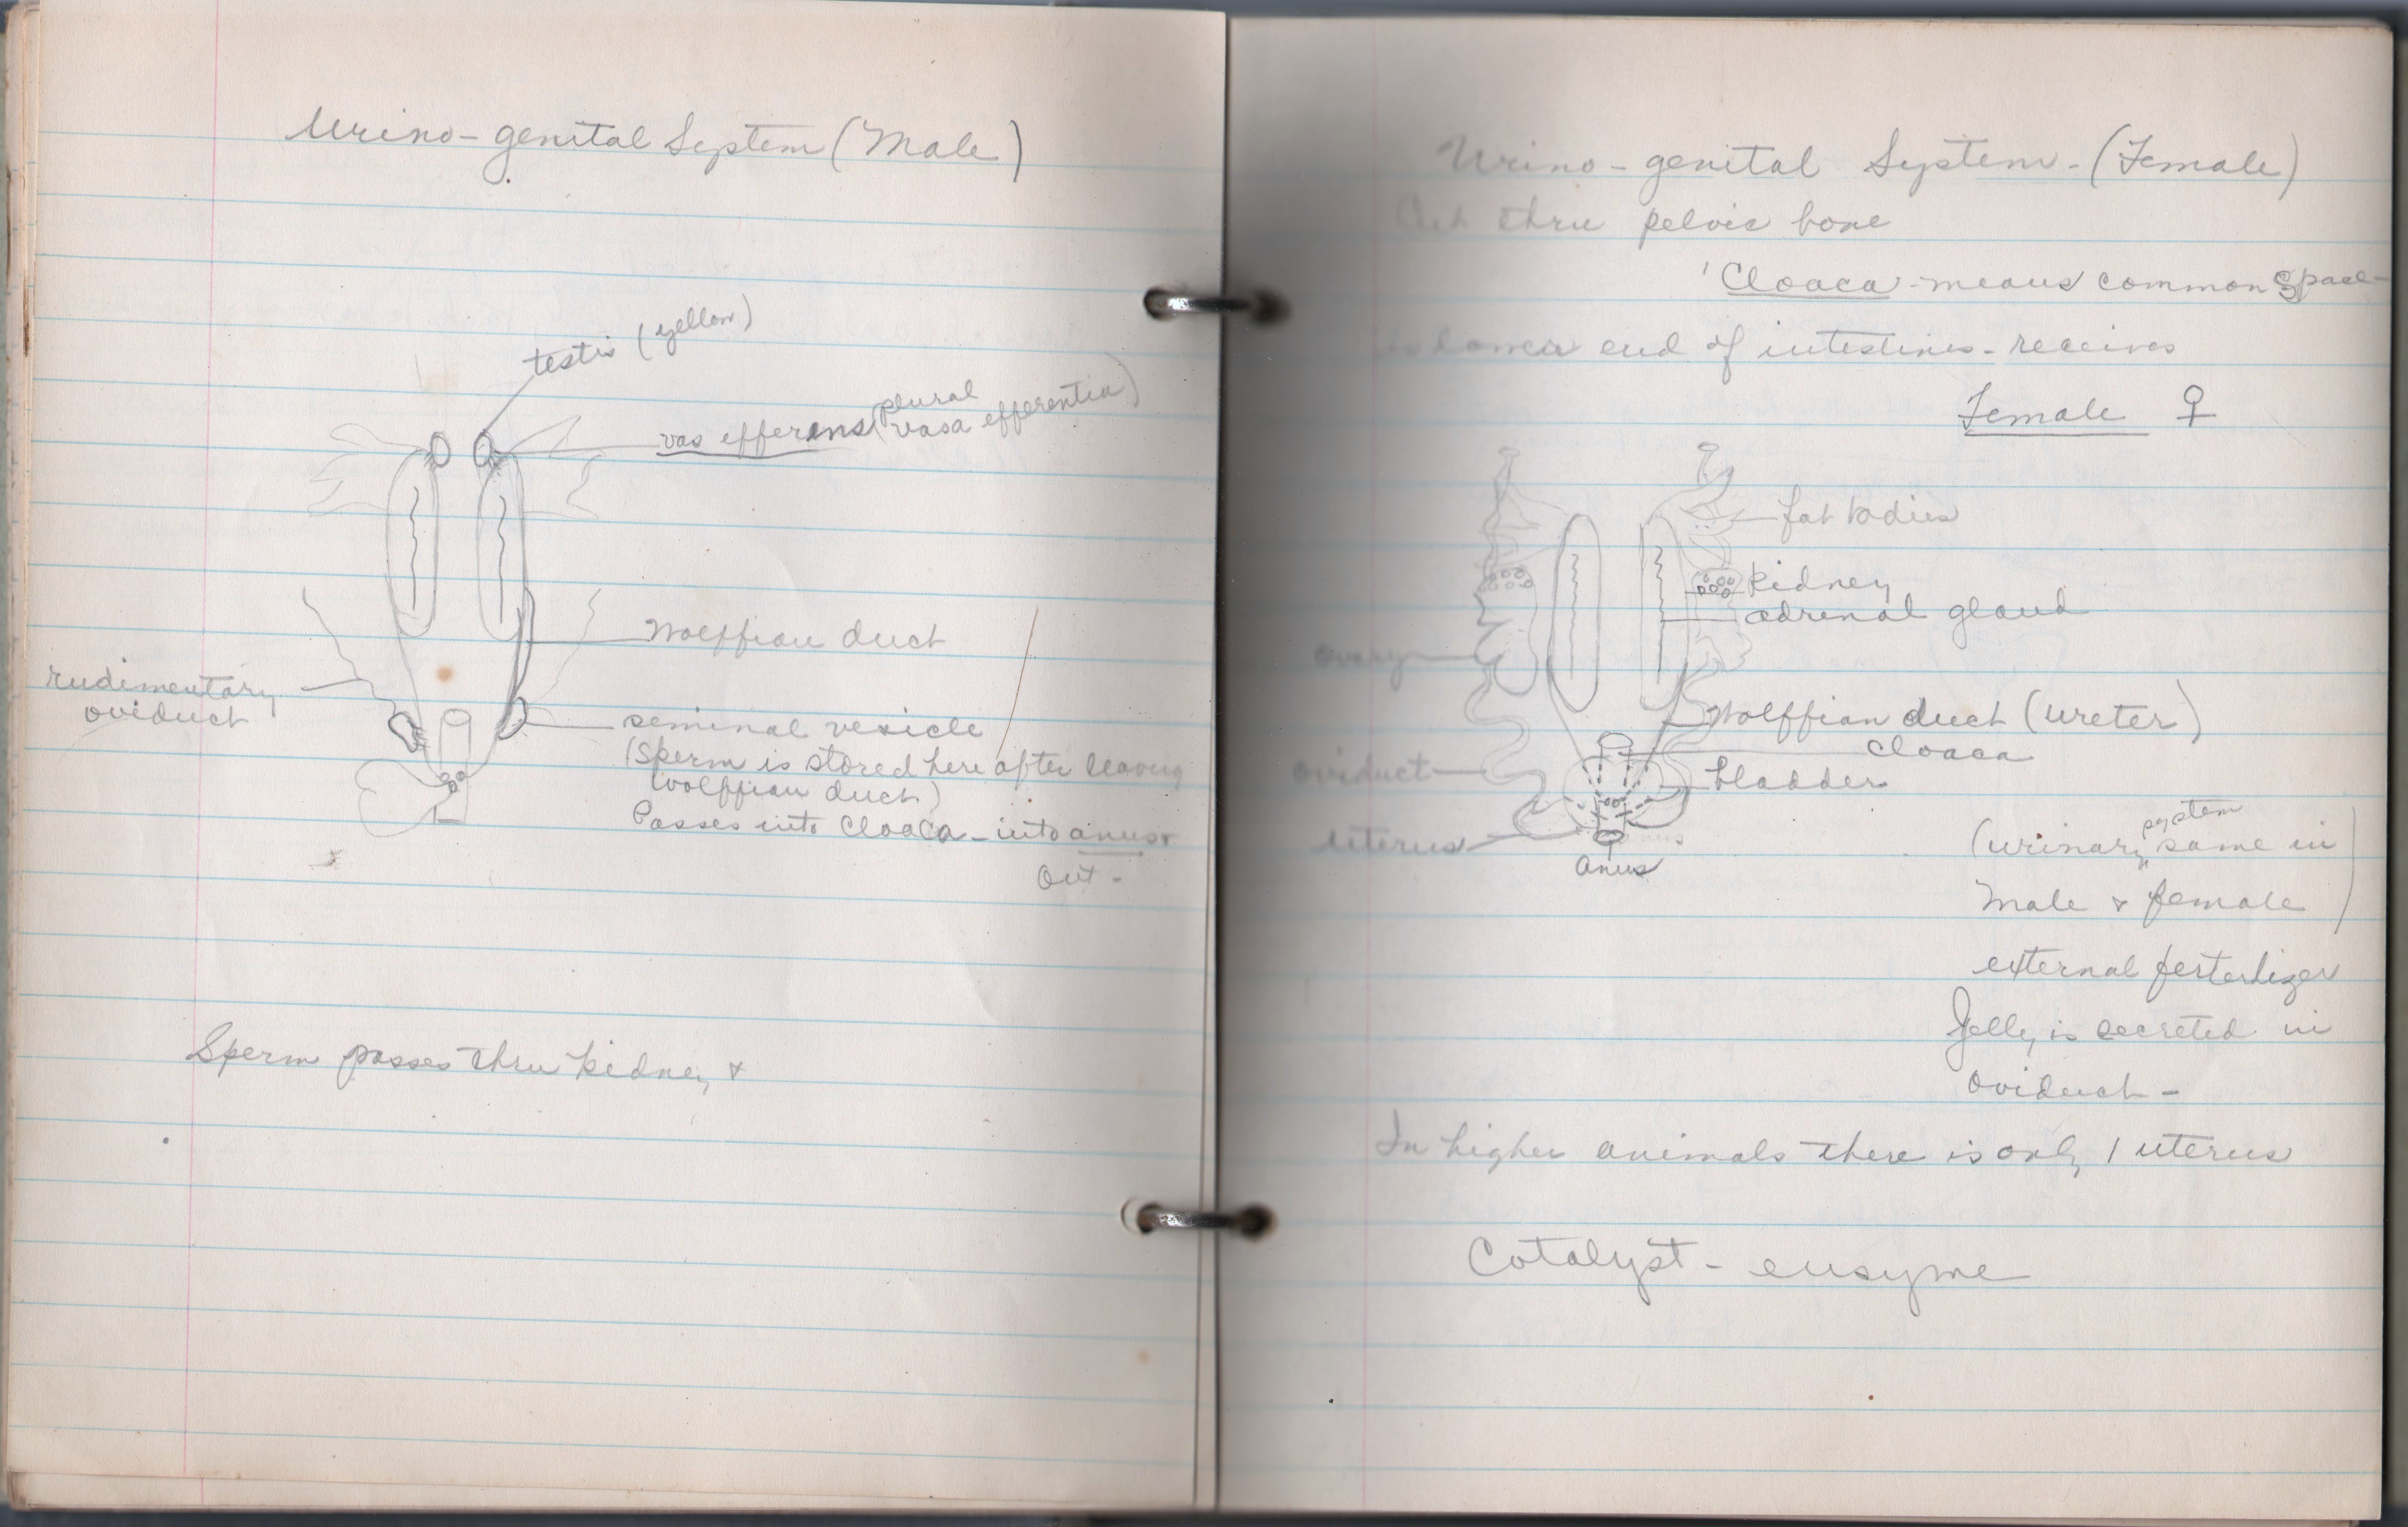 Urino-genital System (Male)
testis (yellow)
vas efferens (plural
vasa efferentia)
Wolffian duct
rudimentary
oviduct
seminal vesicle
(Sperm is stored here after leaving
wolffian duct)
Passes into Cloaca - into anus &
out -
Sperm passes thru kidney &
Urino-genital System - (Female)
Cut thru pelvic bone
Cloaca - means common space -
is lower end of intestines - receives
Female ♀
fat bodies
kidney
adrenal gland
ovary
Wolffian duct (ureter)
cloaca
oviduct
bladder
uterus
anus
anus
(urinary system same in
male & female)
external fertilizer
Jelly is secreted in
oviduct -
In higher animals there is only 1 uterus
Catalyst - ensyme